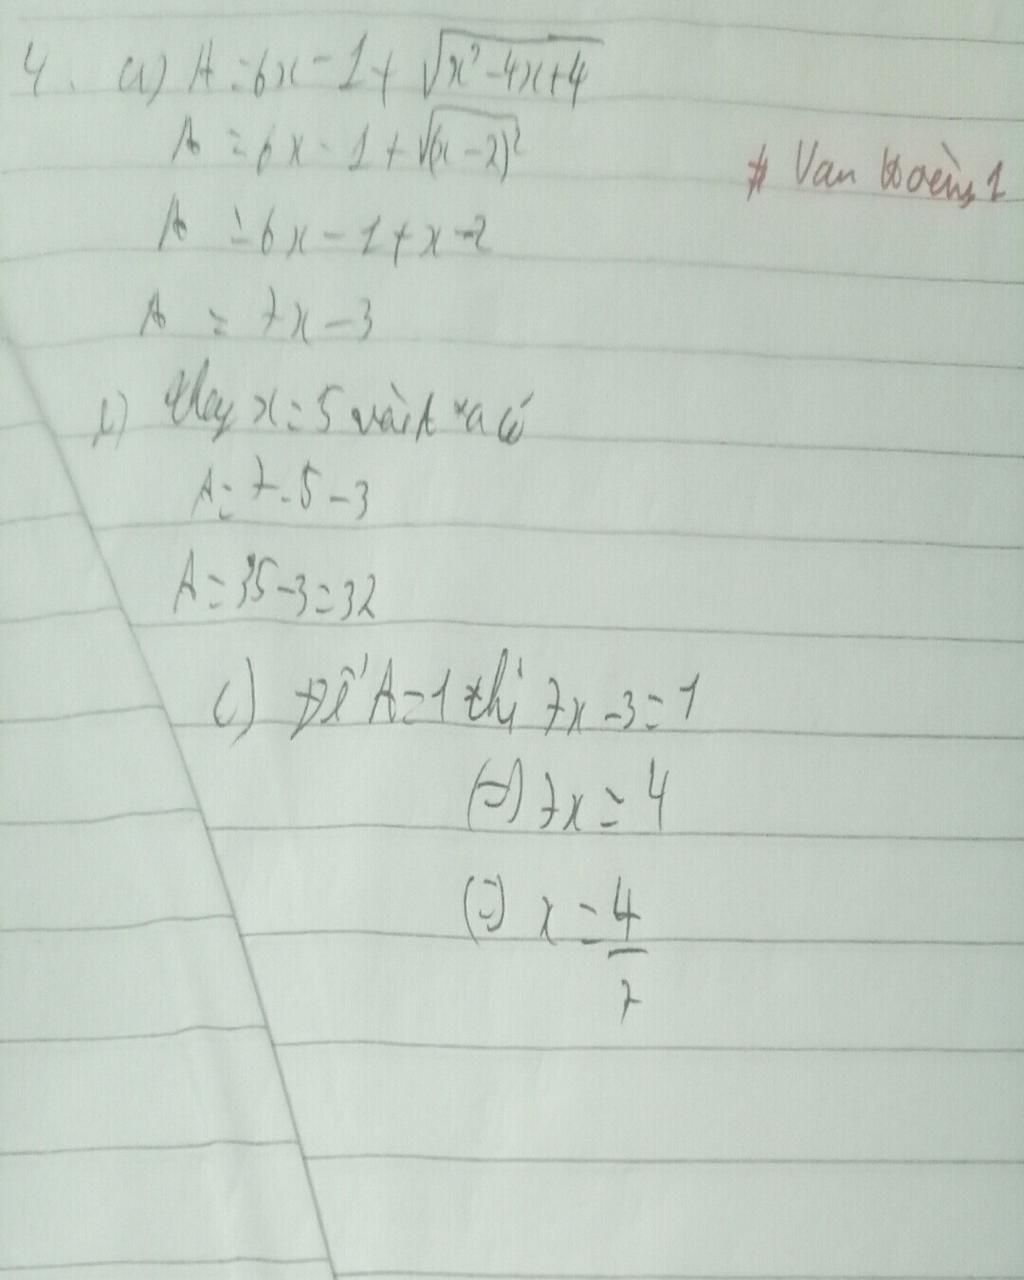 4. a) A = 6x - 1 + √(x² - 4x + 4)
A = 6x - 1 + √(x - 2)²
# Van Hoàng 1
A = 6x - 1 + x - 2
A = 7x - 3
b) thay x = 5 vào A ta có
A = 7.5 - 3
A = 35 - 3 = 32
c) Để A = 1 thì 7x - 3 = 1
(=) 7x = 4
(=) x = 4/7